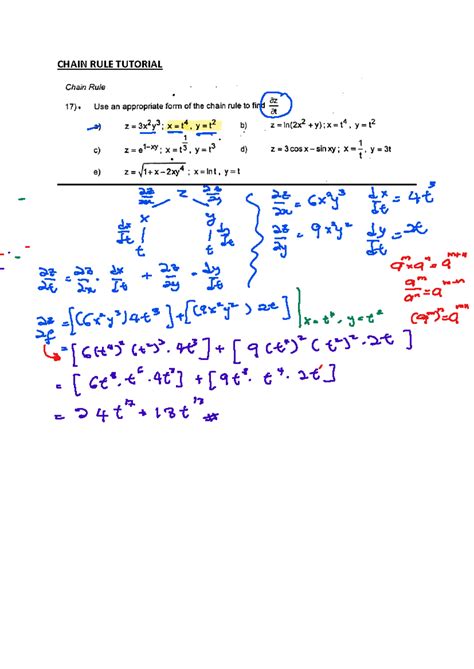 CHAIN RULE TUTORIAL
Chain Rule
17) Use an appropriate form of the chain rule to find ∂z/∂t
a) z = 3x²y³ ; x = t⁴ , y = t² b) z = ln(2x² + y) ; x = t⁴ , y = t²
c) z = e^(1−xy) ; x = t^(1/3) , y = t³ d) z = 3 cos x − sin xy ; x = 1/t , y = 3t
e) z = √(1 + x − 2xy⁴) ; x = ln t , y = t
∂z/∂x z ∂z/∂y
x y
dx/dt dy/dt
t t
∂z/∂x = 6x²y³ dx/dt = 4t³
∂z/∂y = 9x²y² dy/dt = 2t
∂z/∂t = ∂z/∂x · dx/dt + ∂z/∂y · dy/dt
aᵐ × aⁿ = aᵐ⁺ⁿ
aᵐ/aⁿ = aᵐ⁻ⁿ
(aᵐ)ⁿ = aᵐˣⁿ
∂z/∂t = [(6x²y³) 4t³] + [(9x²y²) 2t] | x = t⁴ , y = t²
= [6(t⁴)² (t²)³ · 4t³] + [9(t⁴)² (t²)² · 2t]
= [6t⁸ · t⁶ · 4t³] + [9t⁸ · t⁴ · 2t¹]
= 24t¹⁷ + 18t¹³ #